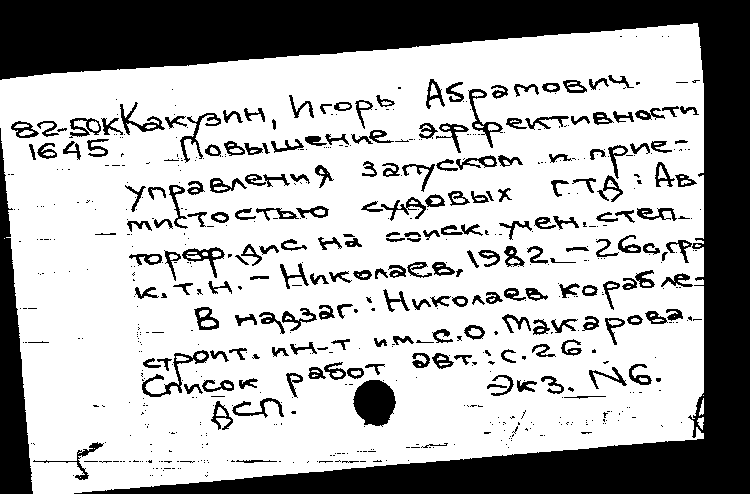 82-50К Какузин, Игорь Абрамович.
1645. Повышение эффективности
управления запуском и прие-
мистостью судовых ГТД: Ав-
тореф. дис. на соиск. учен. степ.
к.т.н. – Николаев, 1982. – 26с, гра
В надзаг.: Николаев корабле-
строит. ин-т им. С.О. Макарова.
Список работ авт.: с. 26.
ДСП. Экз. N6.